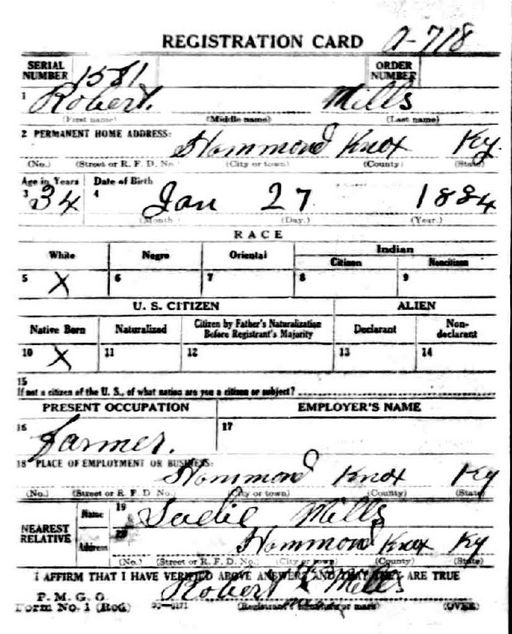 REGISTRATION CARD A-718
SERIAL NUMBER 1581 ORDER NUMBER
1 Robert. Mills
(First name) (Middle name) (Last name)
2 PERMANENT HOME ADDRESS:
Hammond Knox Ky
(No.) (Street or R. F. D. No.) (City or town) (County) (State)
Age in Years Date of Birth
3 34 4 Jan 27 1884
(Month) (Day.) (Year.)
RACE
White Negro Oriental Indian
Citizen Noncitizen
5 X 6 7 8 9
U. S. CITIZEN ALIEN
Native Born Naturalized Citizen by Father's Naturalization Before Registrant's Majority Declarant Non-declarant
10 X 11 12 13 14
15
If not a citizen of the U. S., of what nation are you a citizen or subject?
PRESENT OCCUPATION EMPLOYER'S NAME
16 Farmer. 17
18 PLACE OF EMPLOYMENT OR BUSINESS:
Hammond Knox Ky
(No.) (Street or R. F. D. No.) (City or town) (County) (State)
NEAREST RELATIVE Name 19 Sadie Mills
Address 20 Hammond Knox Ky
(No.) (Street or R. F. D. No.) (City or town) (County) (State)
I AFFIRM THAT I HAVE VERIFIED ABOVE ANSWERS AND THAT THEY ARE TRUE
P. M. G. O.
Form No. 1 (Red) Robert Mills
(Registrant's signature or mark) (OVER)